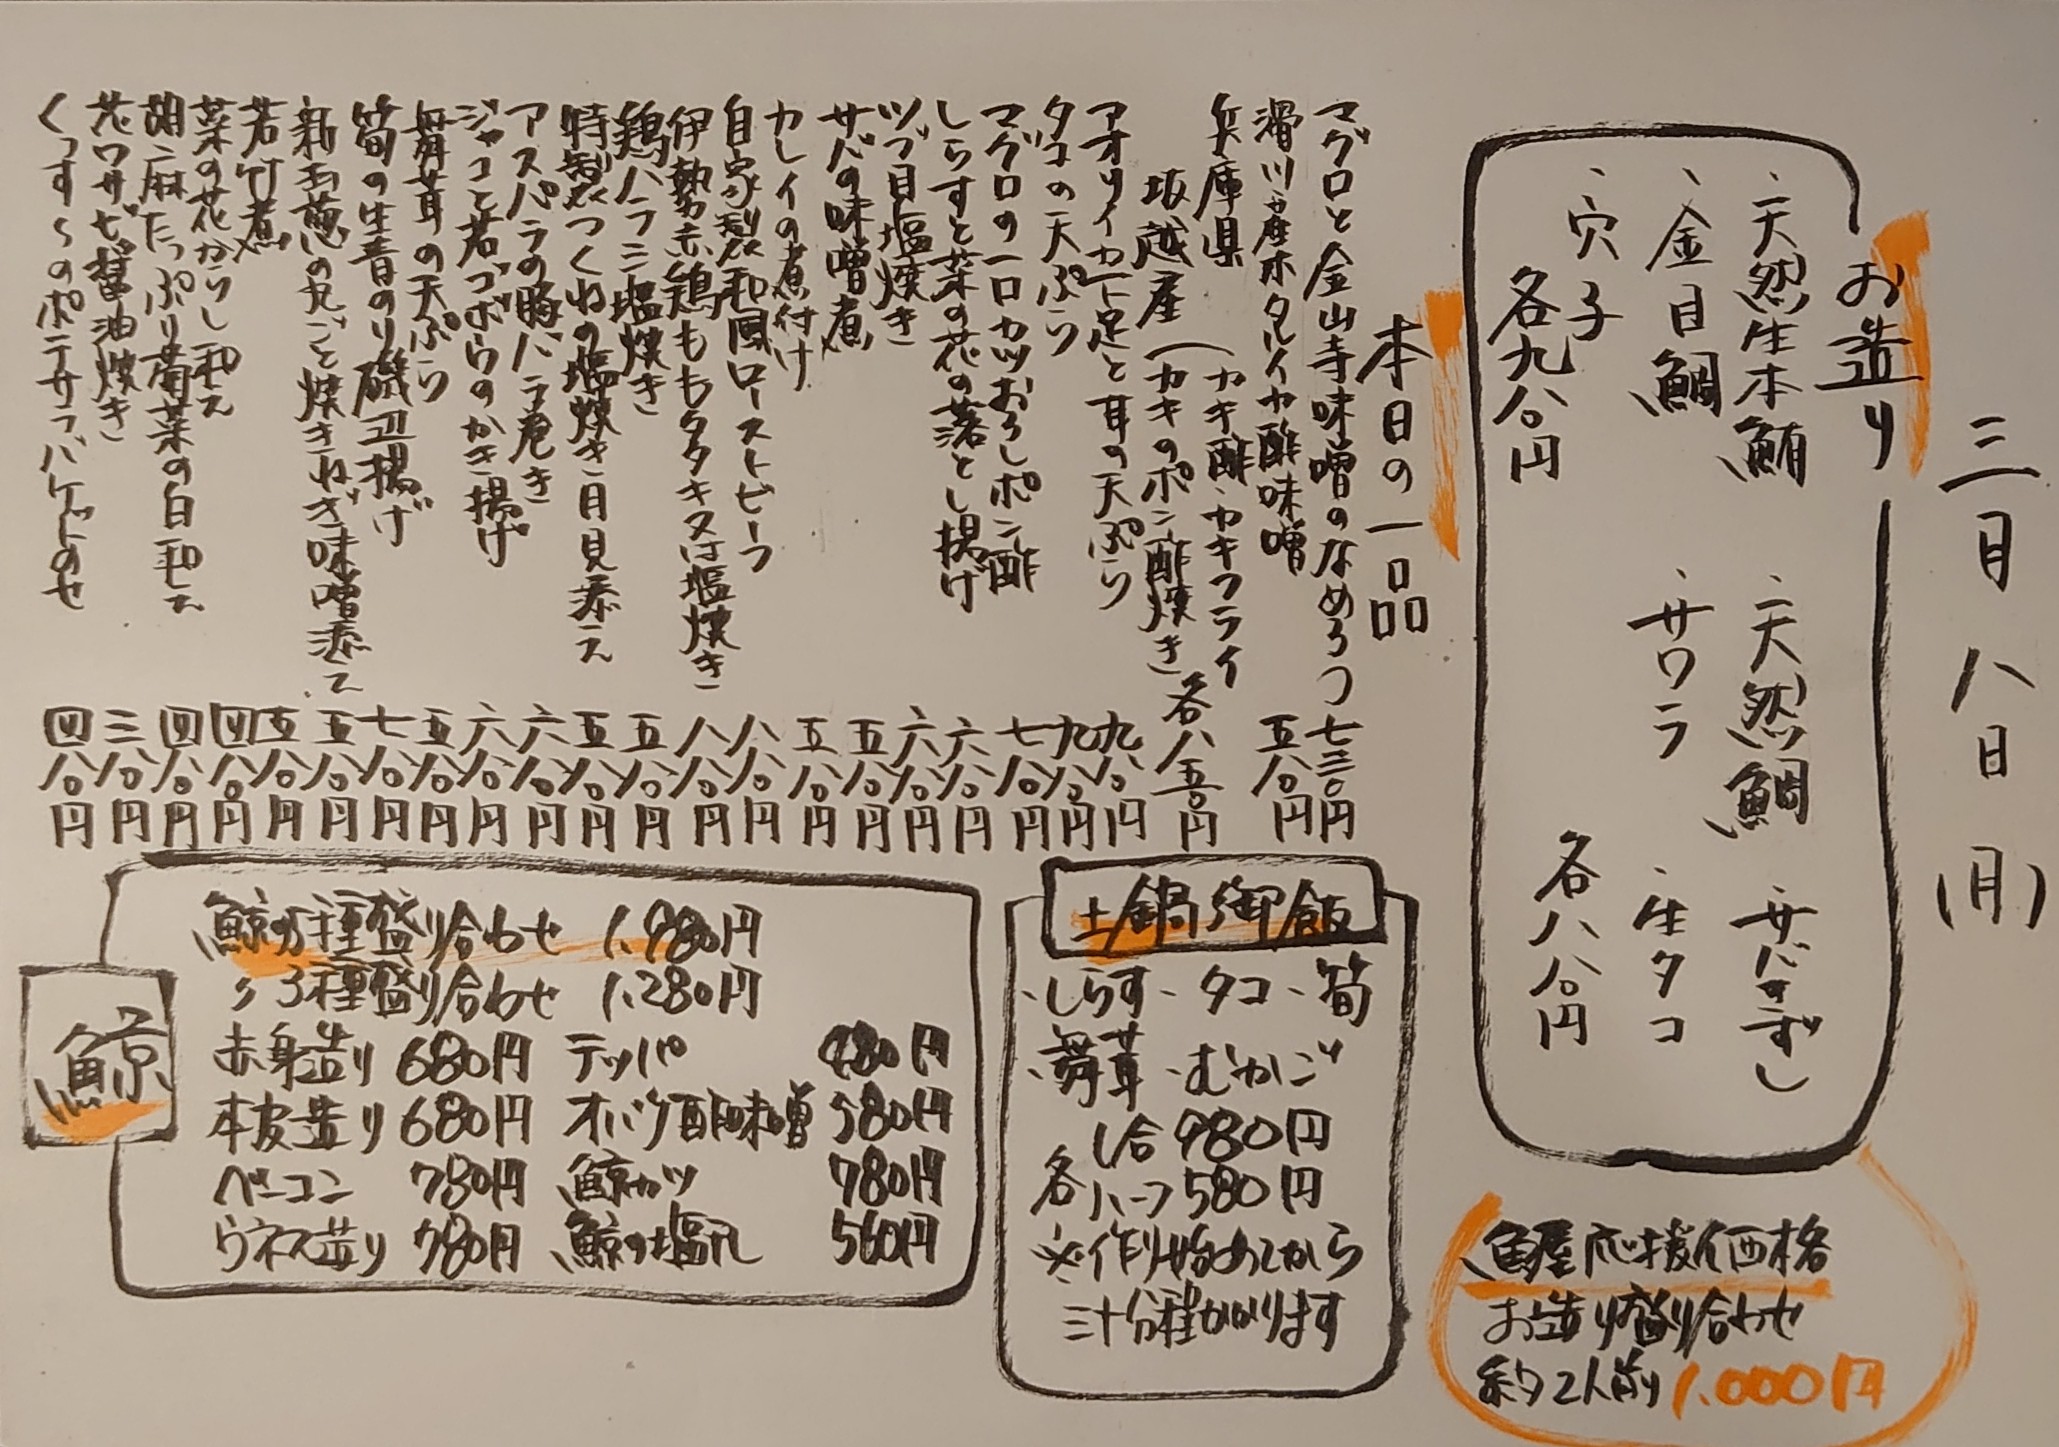 三月八日(月)
お造り
、天然生本鮪 、天然鯛 、サバきずし
、金目鯛 、サワラ 、生タコ
、穴子
各九八〇円 各八八〇円
魚屋応援価格
お造り盛り合わせ
約2人前 1,000円
本日の一品
マグロと金山寺味噌のなめろう 七三〇円
滑川産ホタルイカ酢味噌 五八〇円
兵庫県坂越産(カキ酢・カキフライ
(カキのポン酢焼き 各八五〇円
アオリイカ下足と耳の天ぷら 九八〇円
タコの天ぷら 九八〇円
マグロの一口カツおろしポン酢 七八〇円
しらすと菜の花の落とし揚げ 六八〇円
ツブ貝塩焼き 六八〇円
サバの味噌煮 五八〇円
カレイの煮付け 五八〇円
自家製和風ローストビーフ 八八〇円
伊勢赤鶏ももタタキ又は塩焼き 八八〇円
鶏ハラミ塩焼き 五八〇円
特製つくねの塩焼き月見添え 五八〇円
アスパラの豚バラ巻き 六八〇円
ジャコと若ゴボウのかき揚げ 六八〇円
舞茸の天ぷら 五八〇円
筍の生青のり磯辺揚げ 七八〇円
新玉葱の丸ごと焼きねぎ味噌添え 五八〇円
若竹煮 五八〇円
菜の花からし和え 四八〇円
胡麻たっぷり菊菜の白和え 四八〇円
花ワサビ醤油焼き 三八〇円
くっす〜のポテサラバケットのせ 四八〇円
土鍋御飯
、しらす 、タコ 、筍
、舞茸 、むかご
各 1合 980円
ハーフ 580円
※作り始めてから
三十分程かかります
鯨
鯨の5種盛り合わせ 1,980円
〃 3種盛り合わせ 1,280円
赤身造り 680円 テッパ 480円
本皮造り 680円 オバケ酢味噌 580円
ベーコン 780円 鯨カツ 780円
ウネス造り 780円 鯨の塩 560円